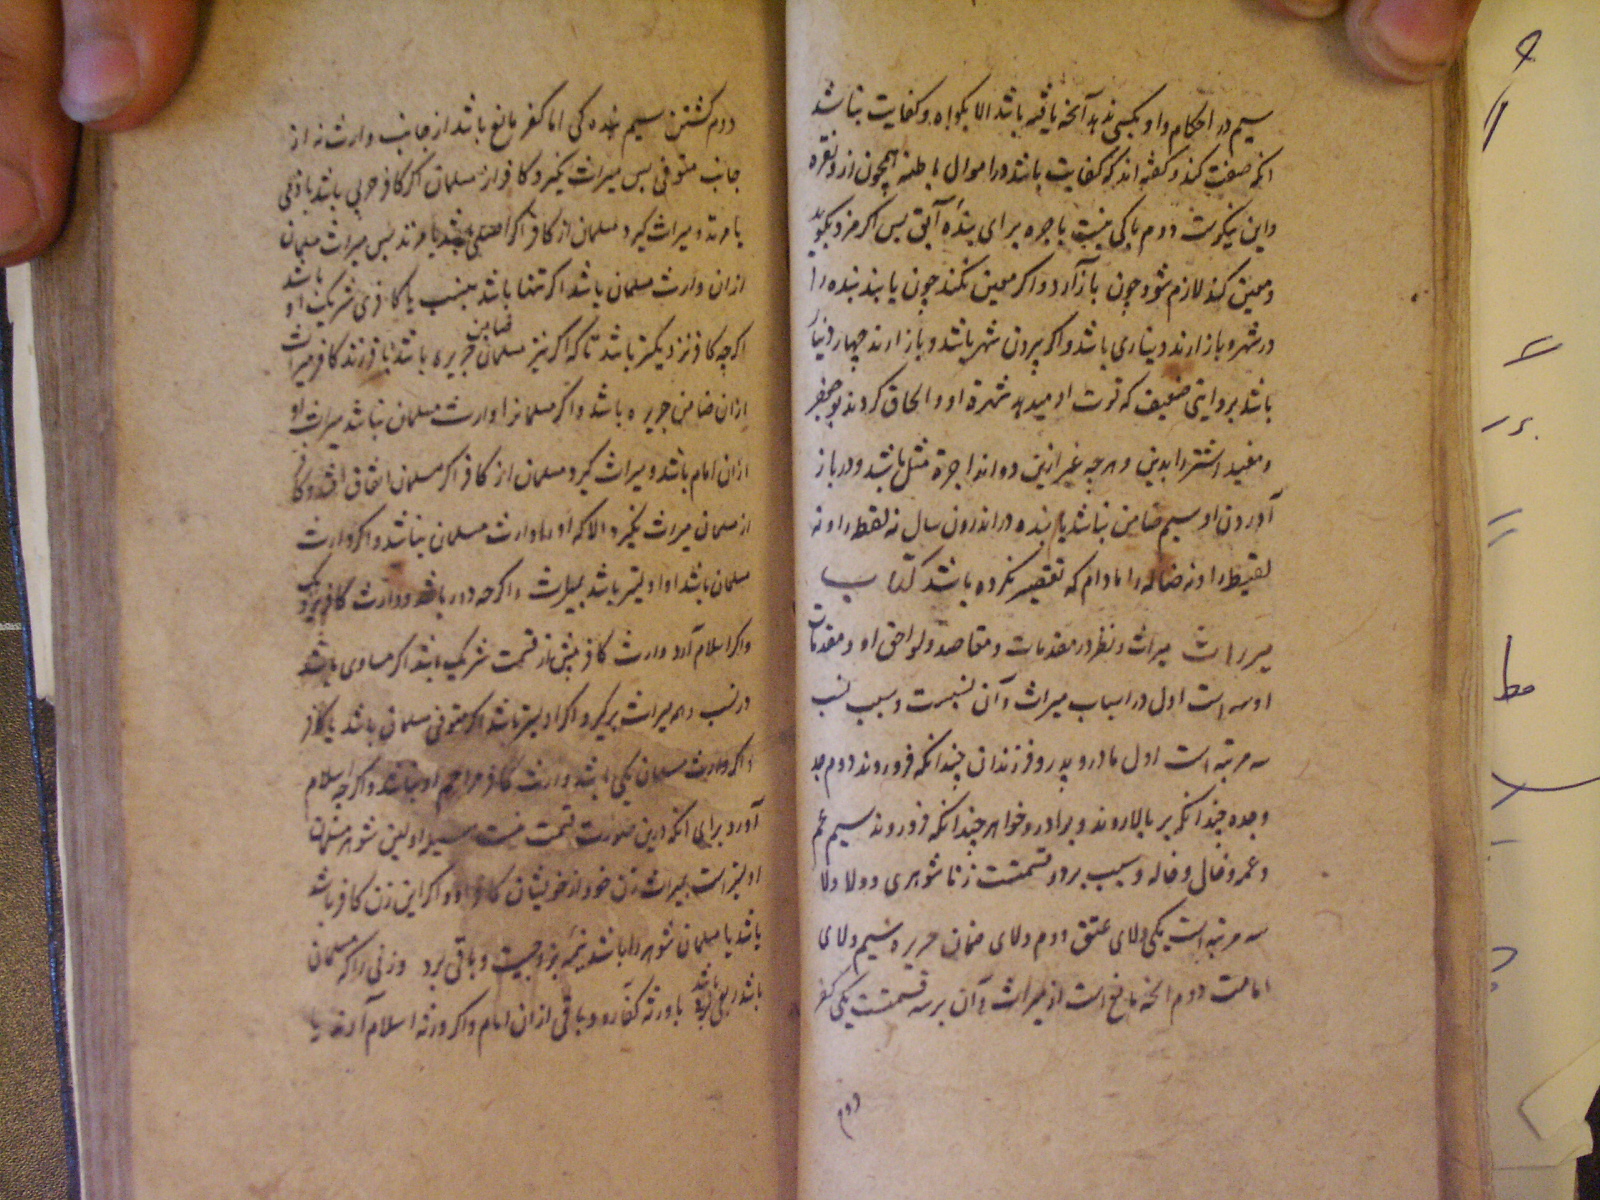 سیم در احکام و او بکسی ندهد آنچه یافته باشد الا بکواه و کفایت نباشد
انکه صفت کند و کفته اند که کفایت باشد در اموال باطنه همچون زر و نقره
و این نیکوست دوم باکی نیست باجره برای بندهٔ آبق پس اکر مزد بکوید
و معین کند لازم شود چون باز آرد و اکر معین نکند چون یابد بنده را
در شهر و باز ارند دیناری باشد و اکر بیرون شهر باشد و باز ارند چهار دینار
باشد بروایتی ضعیف که قوت او میدهد شهرة او و الحاق کردند بو جعفر
و مفید اشتر را بدین و هرچه غیر ازین دو اند اجرة مثل باشد و در باز
آوردن او سیم ضامن نباشد بنده در اندرون سال نه لقطه را و نه
لقیط را و نه ضاله را مادام که تقصیر نکرده باشد کتاب
میراث میراث و نظر در مقدمات و مقاصد و لواحق او و مقدمات
او سه است اول در اسباب میراث و آن نسبست و سبب نسب
سه مرتبه است اول مادر و پدر و فرزندان چندانکه فرو روند دوم جد
و جده چندانکه بر بالا روند و برادر و خواهر چندانکه فرو روند سیم عم
و عمه و خال و خاله و سبب بر دو قسمتست زناشوهری و ولا و ولا
سه مرتبه است یکی ولای عتق دوم ولای ضمان جریره سیم ولای
امامت دوم انچه مانع است از میراث و آن بر سه قسمتست یکی کفر
دوم
دوم کشتن سیم بنده کی اما کفر مانع باشد از جانب وارث نه از
جانب متوفی پس میراث نکیرد کافر از مسلمان اکر کافر حربی باشد یا ذمی
یا مرتد و میراث کیرد مسلمان از کافر اکر اصلی باشد یا مرتد پس میراث مسلمان
از ان وارث مسلمان باشد اکر تنها باشد بنسب یا کافری شریک او باشد
اکرچه کافر نزدیکتر باشد تا که اکر نیز مسلمان ضامن جریره باشد با فرزند کافر میراث
از ان ضامن جریره باشد و اکر مسلمانرا وارث مسلمان نباشد میراث او
ازان امام باشد و میراث کیرد مسلمان از کافر اکر مسلمان اتفاق افتد و کافر
از مسلمان میراث نکیرد الا که او را وارث مسلمان نباشد و اکر وارث
مسلمان باشد او اولیتر باشد بمیراث و اکرچه دور باشد و وارث کافر نزدیک
و اکر اسلام آرد وارث کافر پیش از قسمت شریک باشد اکر مساوی باشد
در نسب و همه میراث برکیرد اکر اولیتر باشد اکر متوفی مسلمان باشد یا کافر
و اکر وارث مسلمان یکی باشد وارث کافر مزاحم او نباشد و اکرچه اسلام
آورد برای انکه درین صورت قسمت نیست اولین شوهر مسلمان
اولیتر است بمیراث زن خود از خویشان کافر او و اکر این زن کافر باشد
باشد یا مسلمان شوهر را باشد نیمه بزوجیت و باقی برد و زنی را که مسلمان
باشد ربعی باشد با ورثه کفار و باقی ازان امام و اکر ورثه اسلام آرند یا